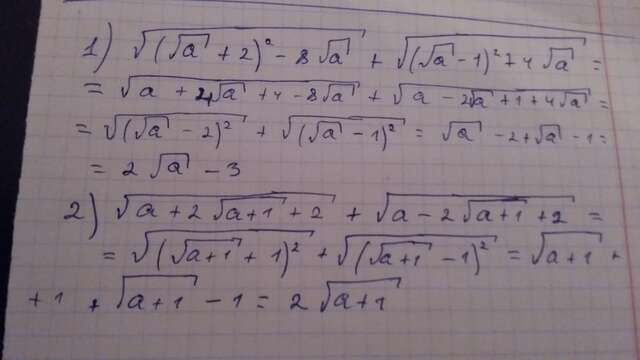 1) √((√a + 2)² - 8√a) + √((√a - 1)² + 4√a) =
= √(a + 4√a + 4 - 8√a) + √(a - 2√a + 1 + 4√a) =
= √((√a - 2)²) + √((√a - 1)²) = √a - 2 + √a - 1 =
= 2√a - 3
2) √(a + 2√(a+1) + 2) + √(a - 2√(a+1) + 2) =
= √((√(a+1) + 1)²) + √((√(a+1) - 1)²) = √(a+1) +
+ 1 + √(a+1) - 1 = 2√(a+1)